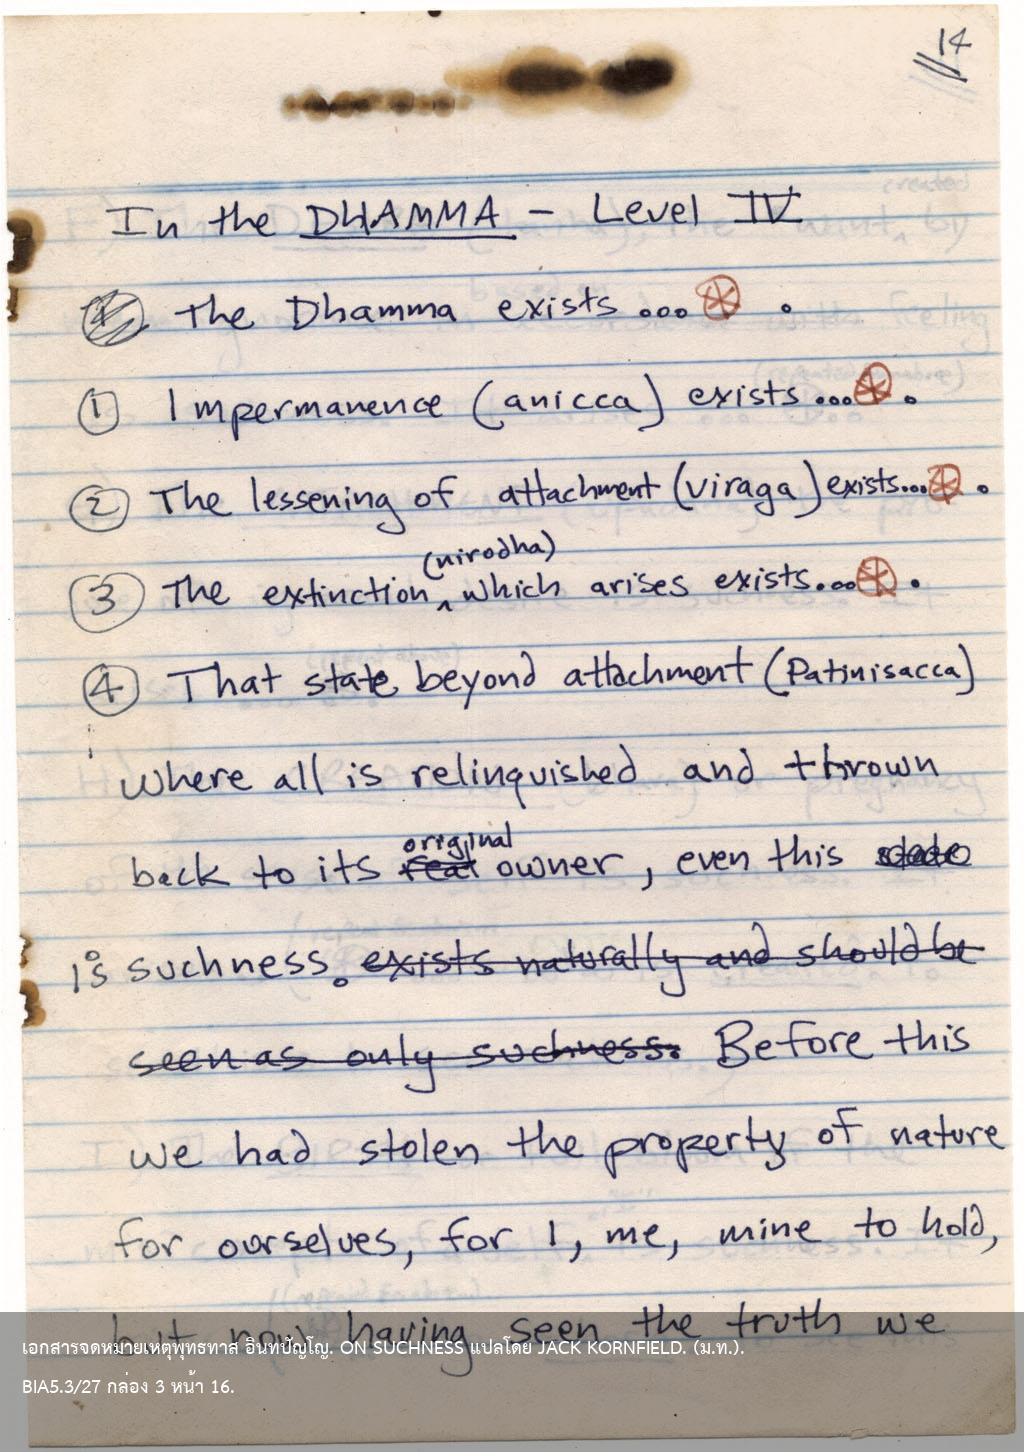 14
In the DHAMMA - Level IV
The Dhamma exists ... .
① Impermanence (anicca) exists ... .
② The lessening of attachment (viraga) exists... .
(nirodha)
③ The extinction ^ which arises exists... .
④ That state beyond attachment (Patinisacca)
where all is relinquished and thrown
original
back to its real owner, even this state
is suchness. exists naturally and should be
seen as only suchness. Before this
we had stolen the property of nature
for ourselves, for I, me, mine to hold,
but now having seen the truth we
เอกสารจดหมายเหตุพุทธทาส อินทปัญโญ. ON SUCHNESS แปลโดย JACK KORNFIELD. (ม.ท.).
BIA5.3/27 กล่อง 3 หน้า 16.